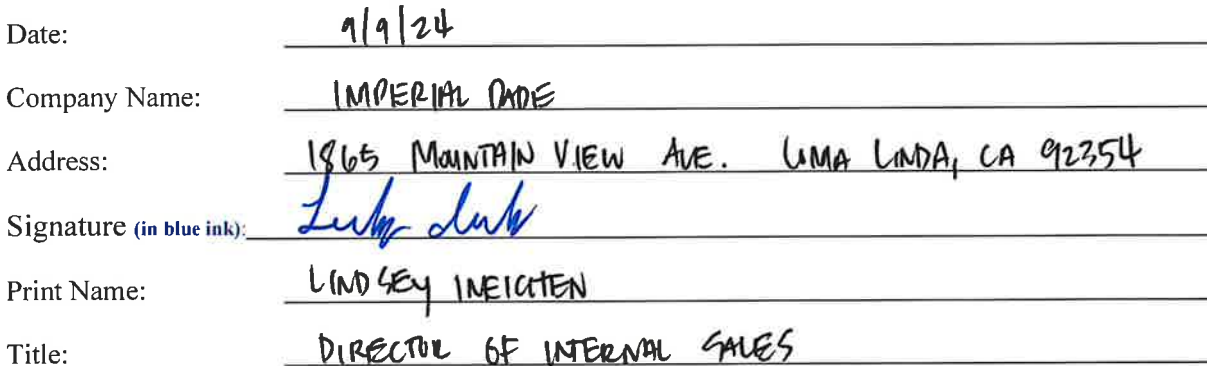 Date: 9/9/24
Company Name: IMPERIAL DADE
Address: 1865 MOUNTAIN VIEW AVE. LOMA LINDA, CA 92354
Signature (in blue ink):
Print Name: LINDSEY INEICHEN
Title: DIRECTOR OF INTERNAL SALES